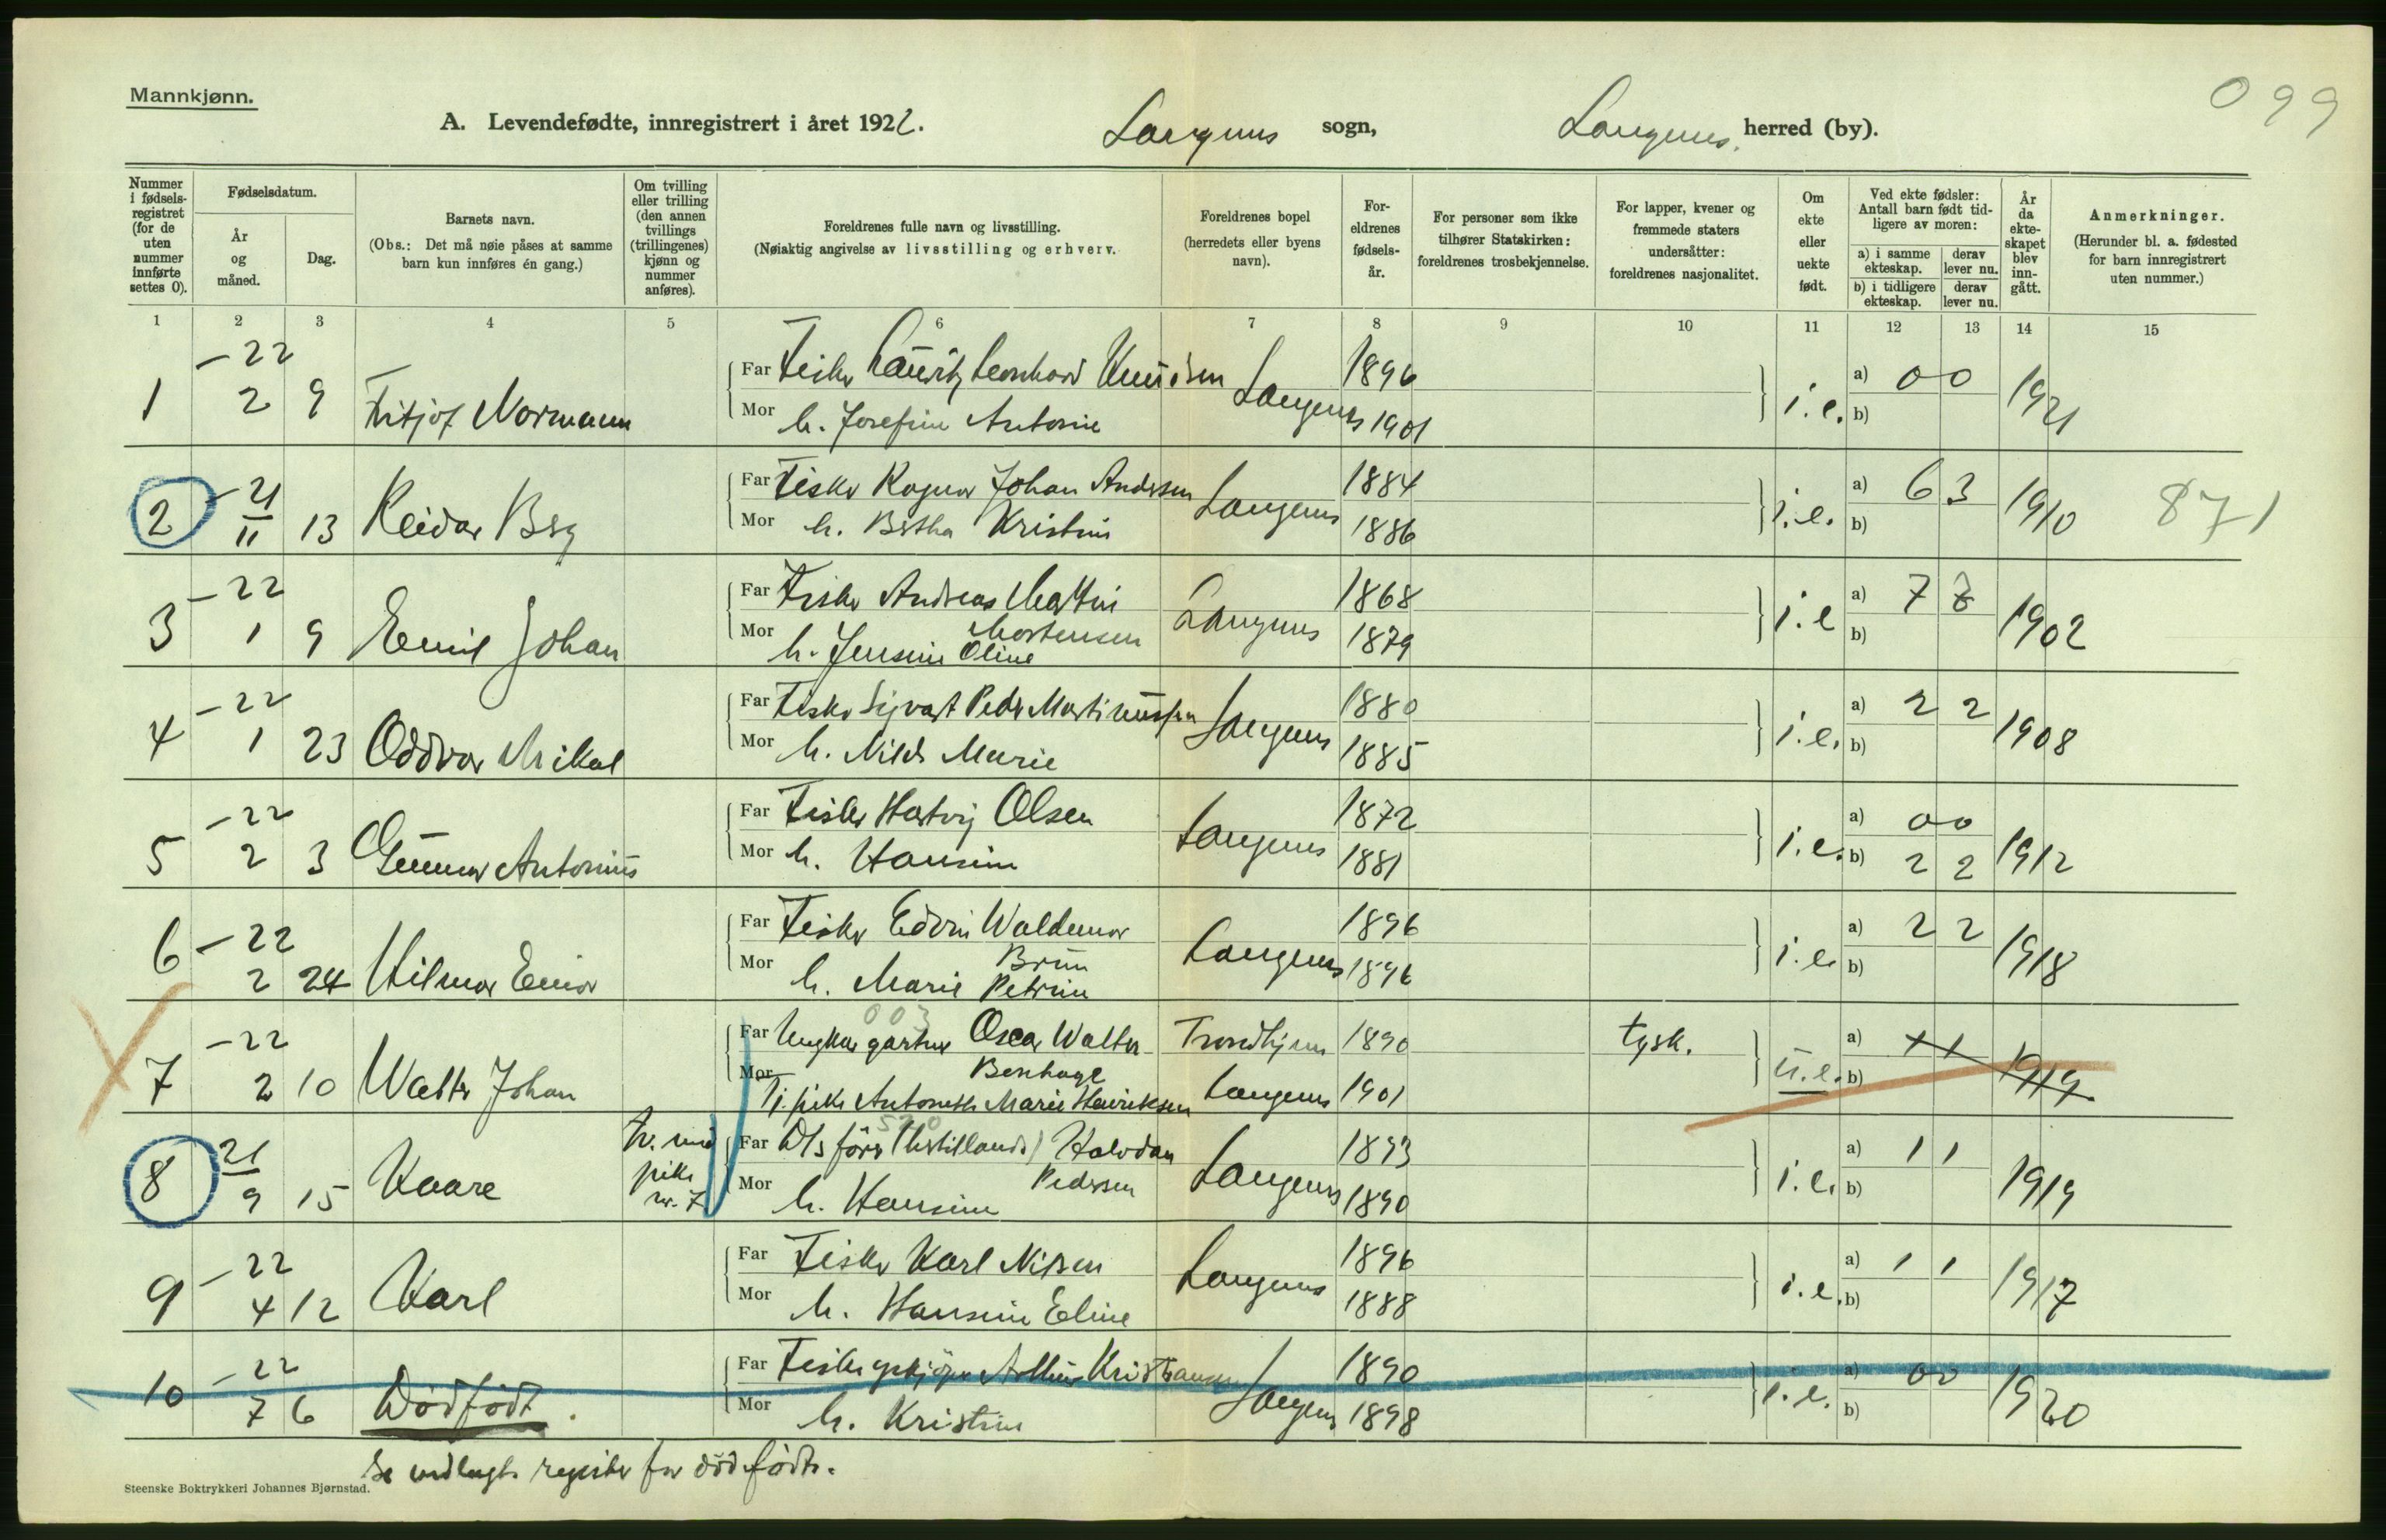 Mannkjønn.
099
A. Levendefødte, innregistrert i året 1922. Langenes sogn, Langenes herred (by).
Nummer i fødsels-registret (for de uten nummer innførte settes 0).
Fødselsdatum.
År og måned.
Dag.
Barnets navn.
(Obs.: Det må nøie påses at samme barn kun innføres én gang.)
Om tvilling eller trilling (den annen tvillings (trillingenes) kjønn og nummer anføres).
Foreldrenes fulle navn og livsstilling.
(Nøiaktig angivelse av livsstilling og erhverv.
Foreldrenes bopel (herredets eller byens navn).
For-eldrenes fødsels-år.
For personer som ikke tilhører Statskirken: foreldrenes trosbekjennelse.
For lapper, kvener og fremmede staters undersåtter: foreldrenes nasjonalitet.
Om ekte eller uekte født.
Ved ekte fødsler: Antall barn født tid-ligere av moren:
a) i samme ekteskap.
derav lever nu.
b) i tidligere ekteskap.
derav lever nu.
År da ekte-skapet blev inn-gått.
Anmerkninger.
(Herunder bl. a. fødested for barn innregistrert uten nummer.)
1 2 3 4 5 6 7 8 9 10 11 12 13 14 15
1 -22 2 9 Fritjof Normann
Far Fisker Lauritz Leonhard Knudsen Langenes 1896 i.e. a) 0 0 1921
Mor h. Josefine Antonie 1901 b)
2 -21 11 13 Reidar Berg
Far Fisker Ragnar Johan Andersen Langenes 1884 i.e. a) 6 3 1910 871
Mor h. Bertha Kristine 1886 b)
3 -22 1 9 Emil Johan
Far Fisker Andreas Martin Mortensen Langenes 1868 i.e a) 7 7 1902
Mor h. Jensine Oline 1879 b)
4 -22 1 23 Oddvar Mikal
Far Fisker Sigvart Peder Martinussen Langenes 1880 i.e. a) 2 2 1908
Mor h. Marie 1885 b)
5 -22 2 3 Gunnar Antonius
Far Fisker Hartvig Olsen Langenes 1872 i.e. a) 0 0 1912
Mor h. Hansine 1881 b) 2 2
6 -22 2 24 Hilmar Einar
Far Fisker Edvin Waldemar Brun Langenes 1896 i.e. a) 2 2 1918
Mor h. Marie Petrine 1896 b)
7 -22 2 10 Walter Johan
003
Far Ungkar gartner Oscar Walter Benhage Trondhjem 1890 tysk. u.e. a) 1 1 1919
Mor Tj. pike Antonette Marie Henriksen Langenes 1901 b)
8 21 9 15 Kaare tv. med pike nr. 7
520
Far Halvdan Pedersen Langenes 1893 i.e. a) 1 1 1919
Mor h. Hansine 1890 b)
9 -22 4 12 Karl
Far Fisker Karl Nilsen Langenes 1896 i.e. a) 1 1 1917
Mor h. Hansine Eline 1888 b)
10 -22 7 6 Dødfødt.
Far Arthur Kristiansen Langenes 1890 i.e. a) 0 0 1920
Mor h. Kristine 1898 b)
Se vedlagte register for dødfødte.
Steenske Boktrykkeri Johannes Bjørnstad.